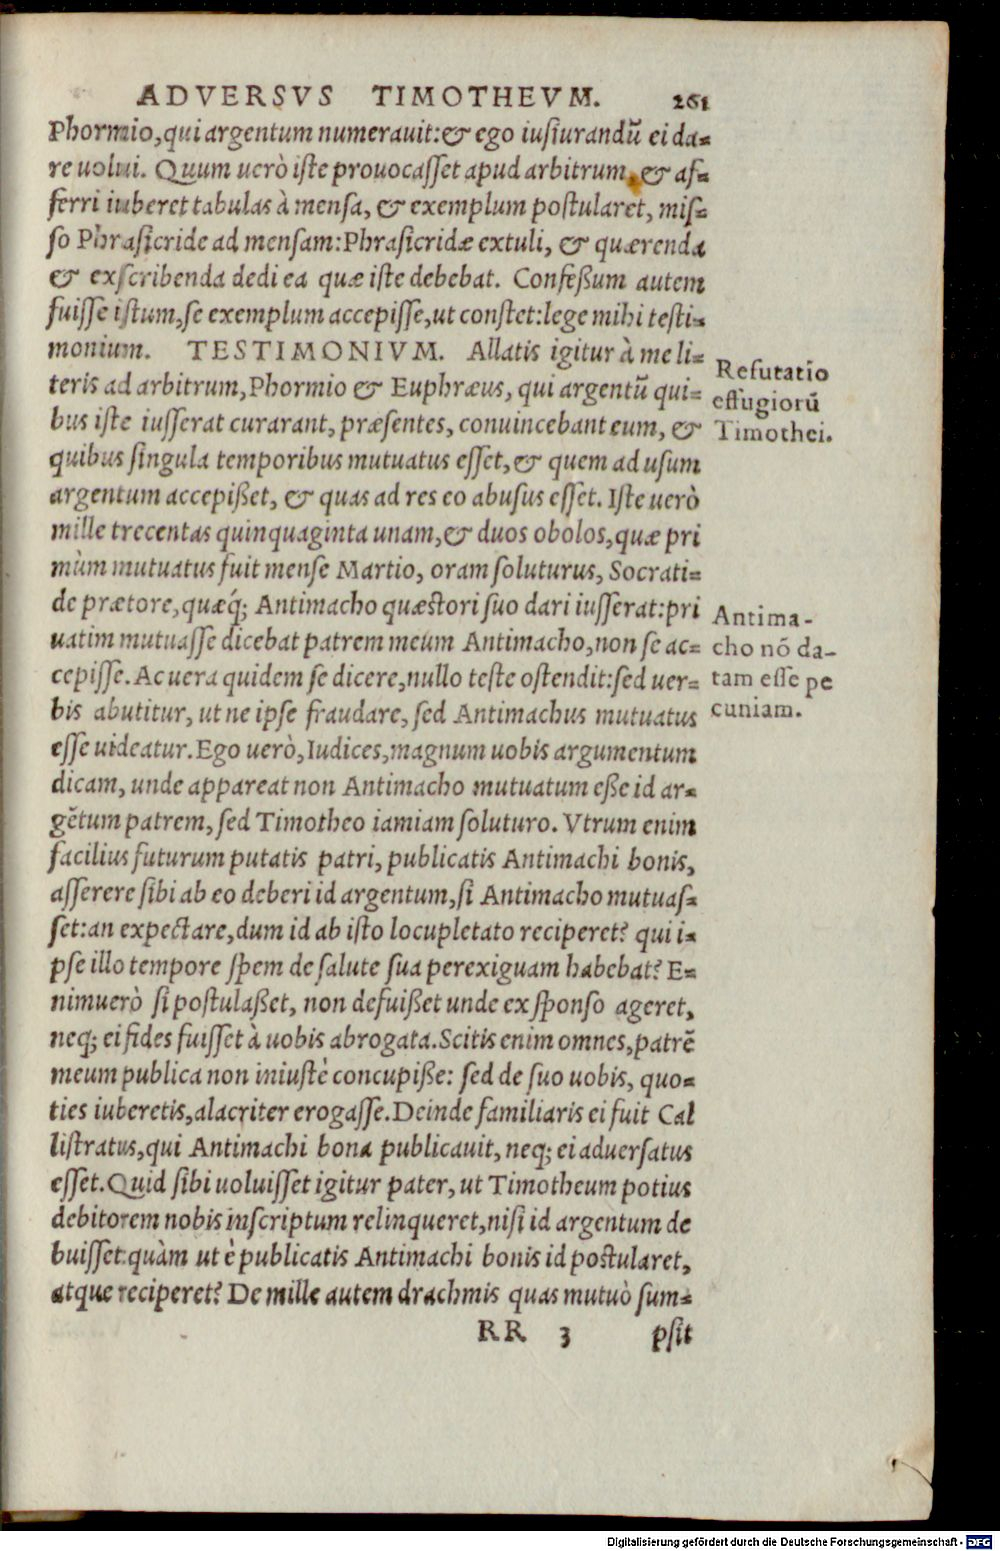 ADVERSVS TIMOTHEVM. 261
Phormio, qui argentum numerauit: & ego iusiurandũ ei da-
re uolui. Quum uerò iste prouocasset apud arbitrum, & af-
ferri iuberet tabulas à mensa, & exemplum postularet, mis-
so Phrasicride ad mensam: Phrasicridæ extuli, & quærenda
& exscribenda dedi ea quæ iste debebat. Confeßum autem
fuisse istum, se exemplum accepisse, ut constet: lege mihi testi-
monium. TESTIMONIVM. Allatis igitur à me li-
teris ad arbitrum, Phormio & Euphræus, qui argentũ qui-
bus iste iusserat curarant, præsentes, conuincebant eum, &
quibus singula temporibus mutuatus esset, & quem ad usum
argentum accepißet, & quas ad res eo abusus esset. Iste uerò
mille trecentas quinquaginta unam, & duos obolos, quæ pri
mùm mutuatus fuit mense Martio, oram soluturus, Socrati-
de prætore, quæq́; Antimacho quæstori suo dari iusserat: pri
uatim mutuasse dicebat patrem meum Antimacho, non se ac-
cepisse. Ac uera quidem se dicere, nullo teste ostendit: sed uer-
bis abutitur, ut ne ipse fraudare, sed Antimachus mutuatus
esse uideatur. Ego uerò, Iudices, magnum uobis argumentum
dicam, unde appareat non Antimacho mutuatum eße id ar-
gẽtum patrem, sed Timotheo iamiam soluturo. Vtrum enim
facilius futurum putatis patri, publicatis Antimachi bonis,
asserere sibi ab eo deberi id argentum, si Antimacho mutuas-
set: an expectare, dum id ab isto locupletato reciperet? qui i-
pse illo tempore spem de salute sua perexiguam habebat? E-
nimuerò si postulaßet, non defuißet unde ex sponso ageret,
neq; ei fides fuisset à uobis abrogata. Scitis enim omnes, patrẽ
meum publica non iniustè concupiße: sed de suo uobis, quo-
ties iuberetis, alacriter erogasse. Deinde familiaris ei fuit Cal
listratus, qui Antimachi bona publicauit, neq; ei aduersatus
esset. Quid sibi uoluisset igitur pater, ut Timotheum potius
debitorem nobis inscriptum relinqueret, nisi id argentum de
buisset: quàm ut è publicatis Antimachi bonis id postularet,
atque reciperet? De mille autem drachmis quas mutuò sum-
RR 3 psit
Refutatio
effugiorũ
Timothei.
Antima-
cho nõ da-
tam esse pe
cuniam.
Digitalisierung gefördert durch die Deutsche Forschungsgemeinschaft - DFG